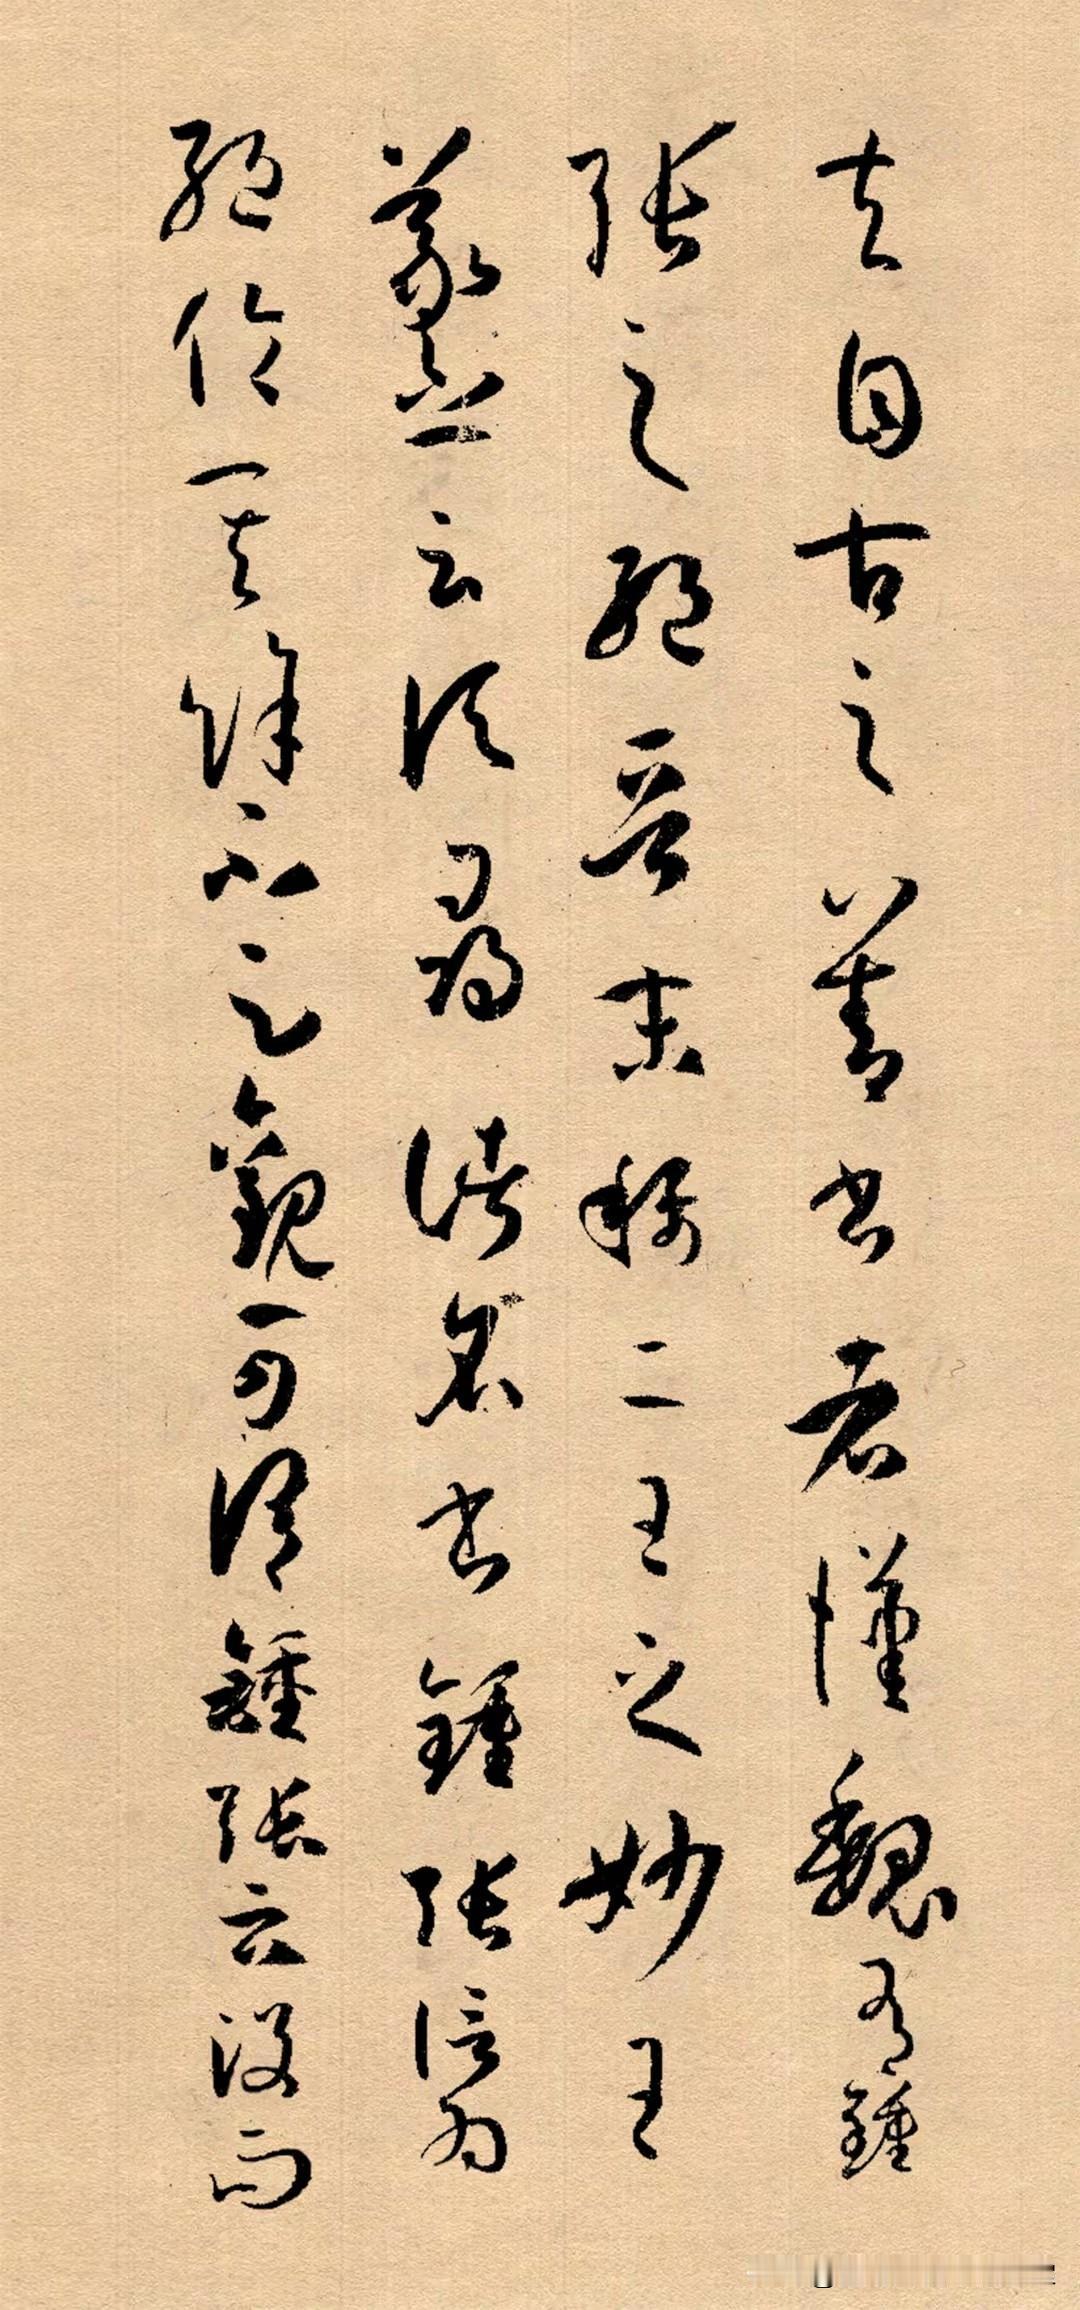 夫自古之善書者漢魏有鍾
張之絕晉末稱二王之妙王
羲之云頃尋諸名書鍾張信為
絕倫其餘不足觀可謂鍾張云沒而